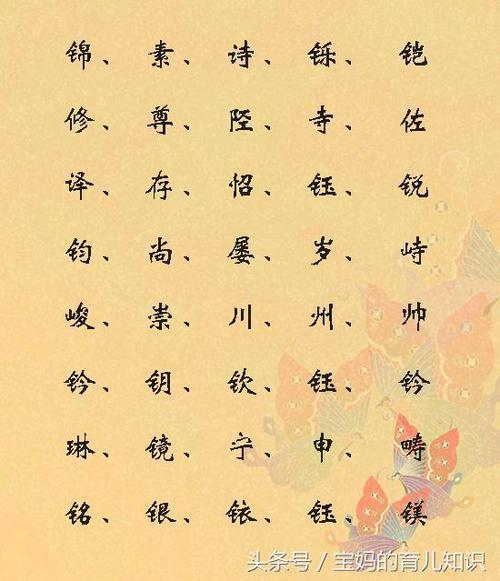 锦、素、诗、铄、铠
修、尊、陞、寺、佐
译、存、怊、钰、锐
钧、尚、屡、岁、峙
峻、崇、川、州、帅
钤、钥、钦、钰、钤
琳、镜、宁、申、畴
铭、银、铱、钰、镁
头条号/宝妈的育儿知识